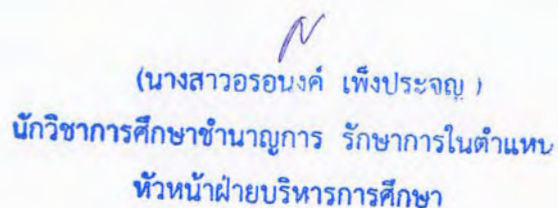 (นางสาวอรอนงค์ เพ็งประจญ)
นักวิชาการศึกษาชำนาญการ รักษาการในตำแหน
หัวหน้าฝ่ายบริหารการศึกษา